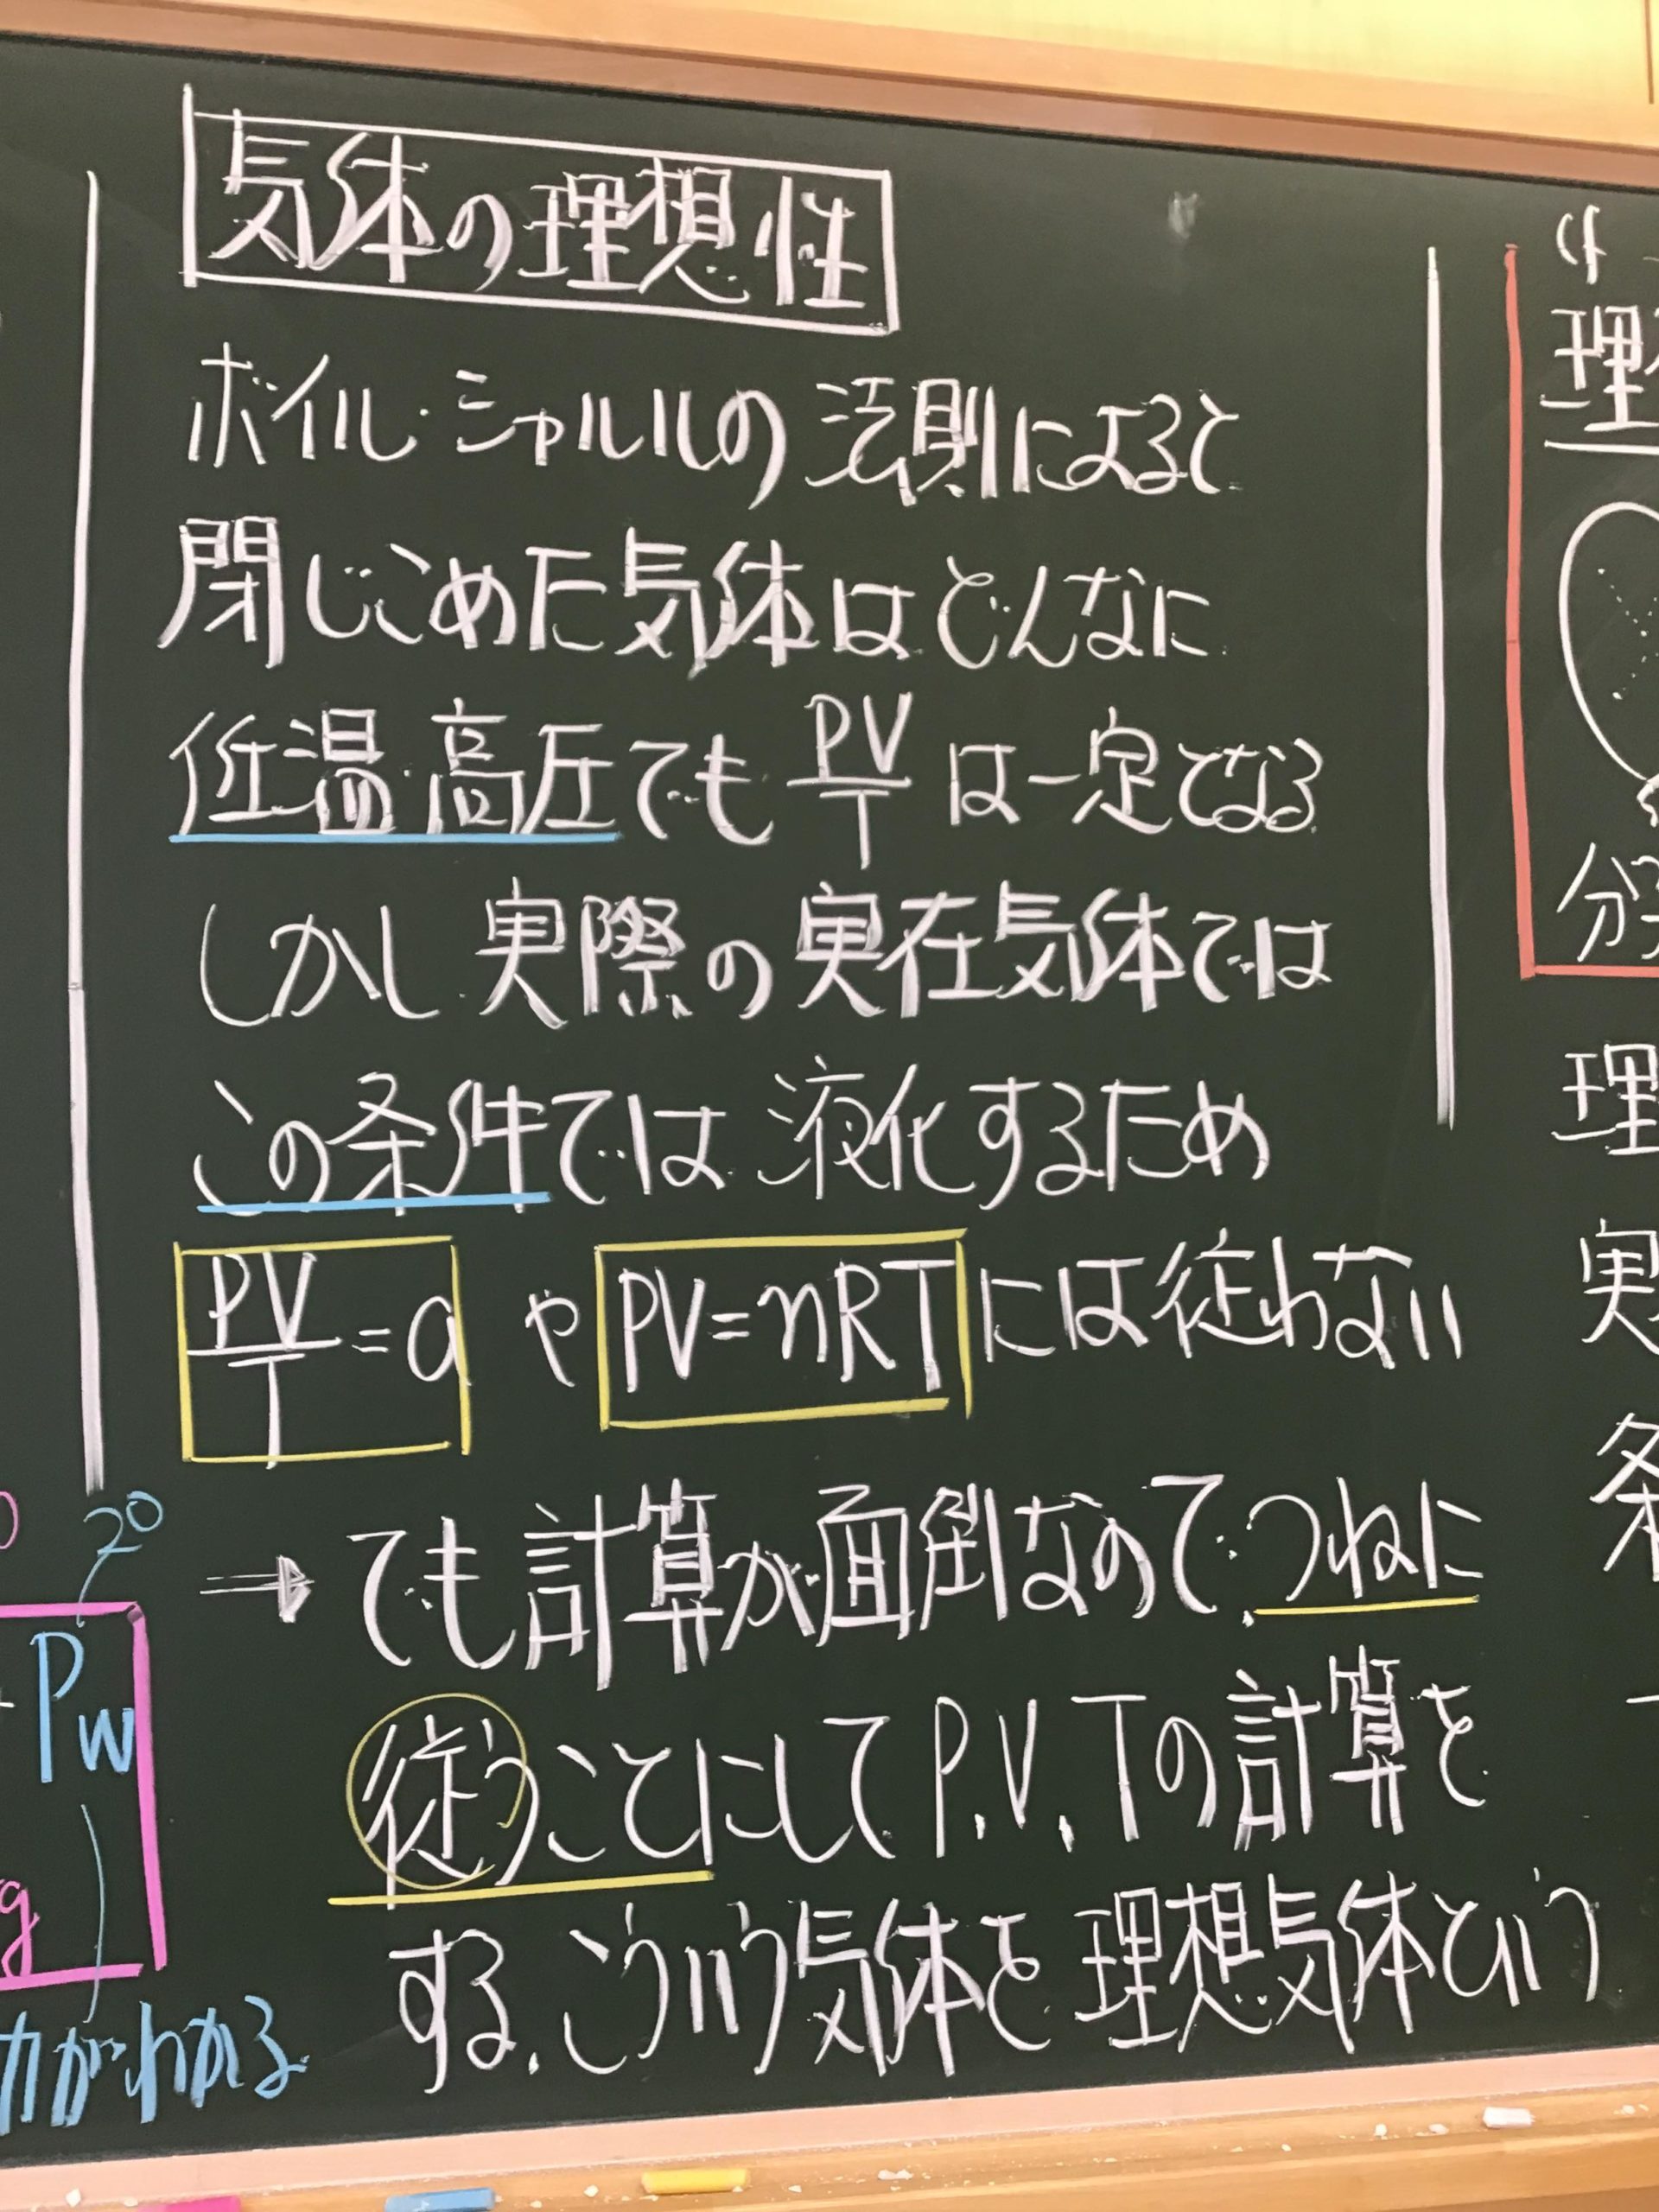 気体の理想性
ボイル・シャルルの法則によると
閉じこめた気体はどんなに
低温・高圧でも PV/T は一定となる
しかし実際の実在気体では
この条件では液化するため
PV/T = a や PV=nRT には従わない
⇒ でも計算が面倒なので、つねに
従うことにして P.V.Tの計算を
する.こういう気体を理想気体という
20
Pw
g
がわかる
理
分
理
実
条